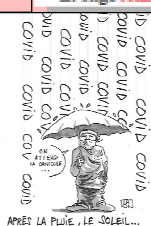 COVID COVID COVID COVID
COVID COVID COVID COVID
COVID COVID COVID COVID
COVID COVID COVID COVID
ON
ATTEND
LA CANICULE
...
APRÈS LA PLUIE, LE SOLEIL...